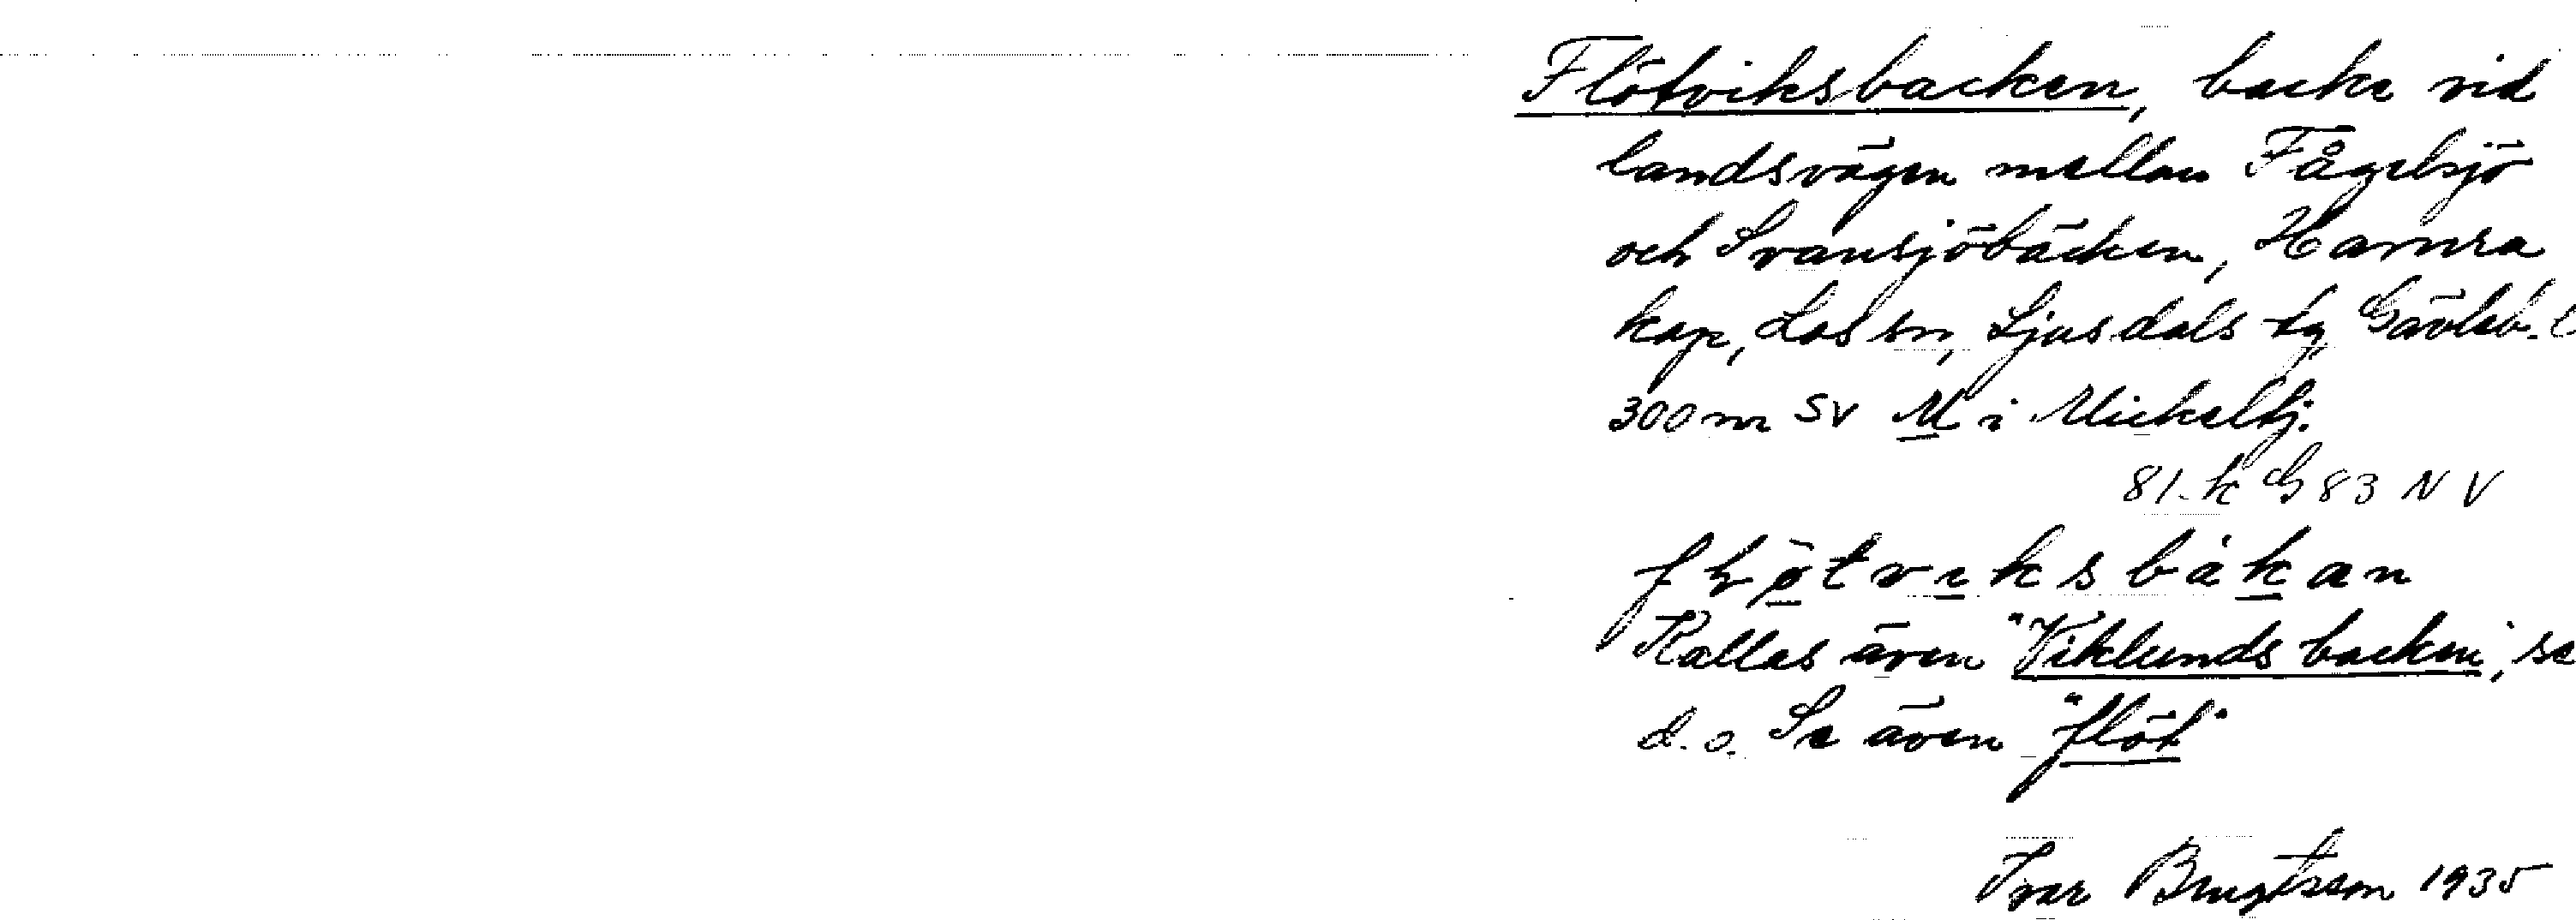 Flötviksbacken, backe vid
landsvägen mellan Fågelsjö
och Svansjöbäcken, Hamra
kap, Los sn, Ljusdals tg Gävleb. l
300 m SV M i Mickeltj.
81-k G 83 NV
Kallas även "Viklunds backen", se
d. o. Se även "flöt"
Ivar Bengtsson 1935